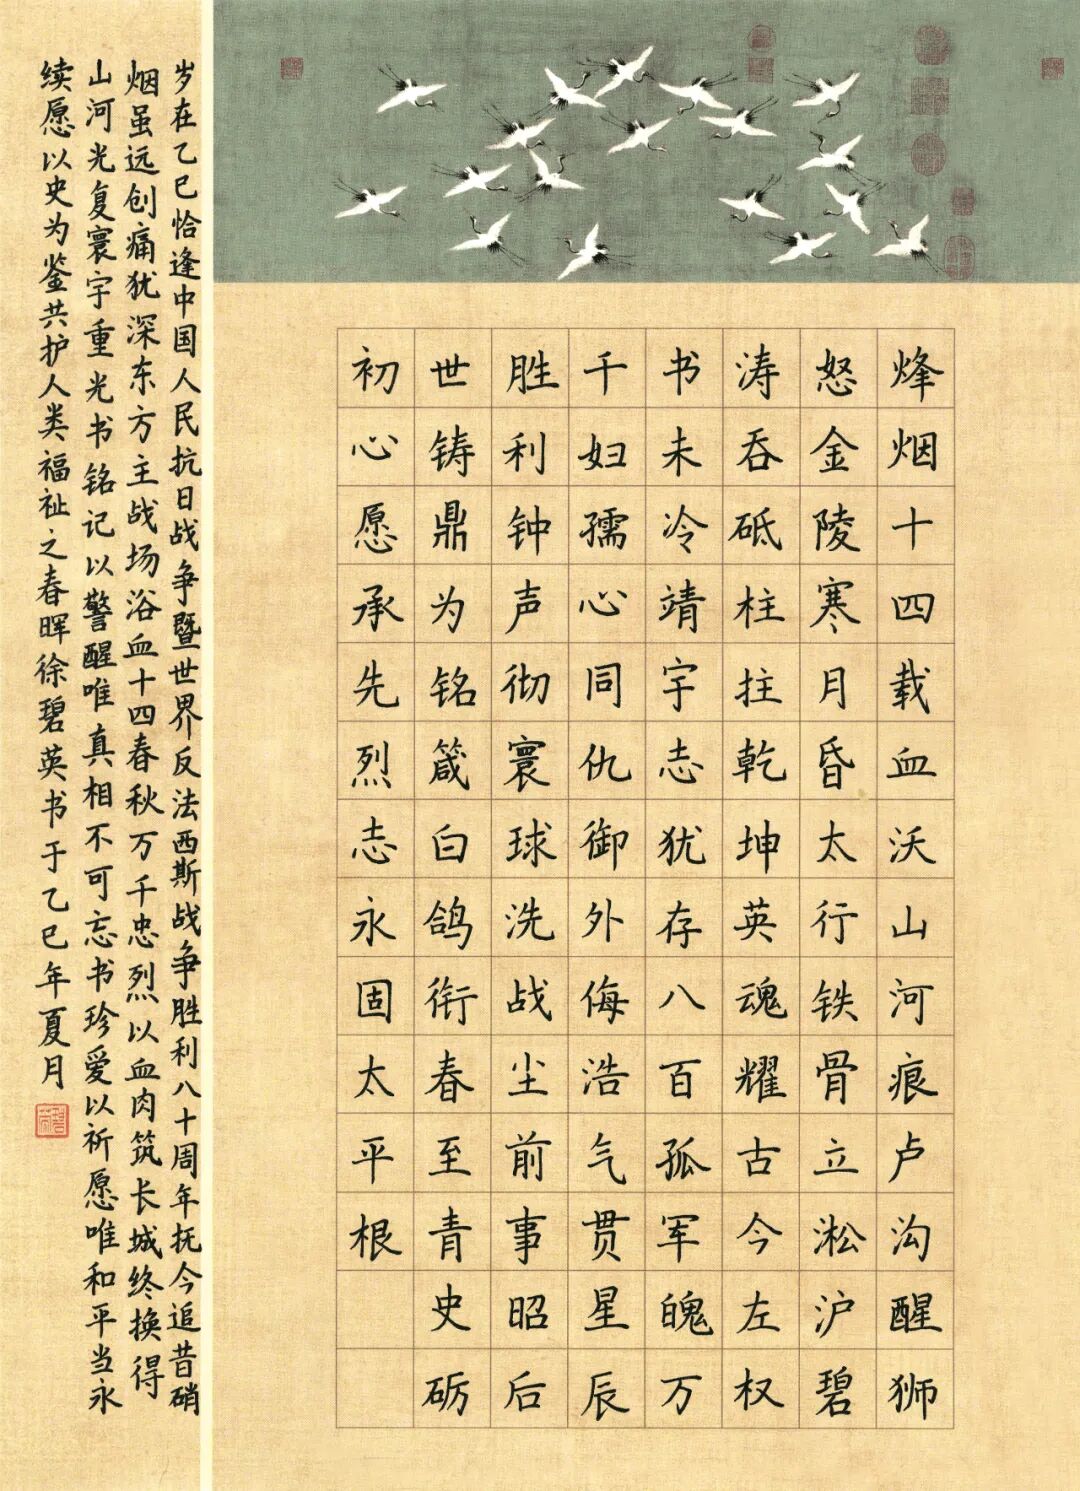 烽烟十四载血沃山河痕卢沟醒狮
怒金陵寒月昏太行铁骨立淞沪碧
涛吞砥柱拄乾坤英魂耀古今左权
书未冷靖宇志犹存八百孤军魄万
千妇孺心同仇御外侮浩气贯星辰
胜利钟声彻寰球洗战尘前事昭后
世铸鼎为铭箴白鸽衔春至青史砺
初心愿承先烈志永固太平根
岁在乙巳恰逢中国人民抗日战争暨世界反法西斯战争胜利八十周年抚今追昔硝
烟虽远创痛犹深东方主战场浴血十四春秋万千忠烈以血肉筑长城终换得
山河光复寰宇重光书铭记以警醒唯真相不可忘书珍爱以祈愿唯和平当永
续愿以史为鉴共护人类福祉之春晖徐碧英书于乙巳年夏月